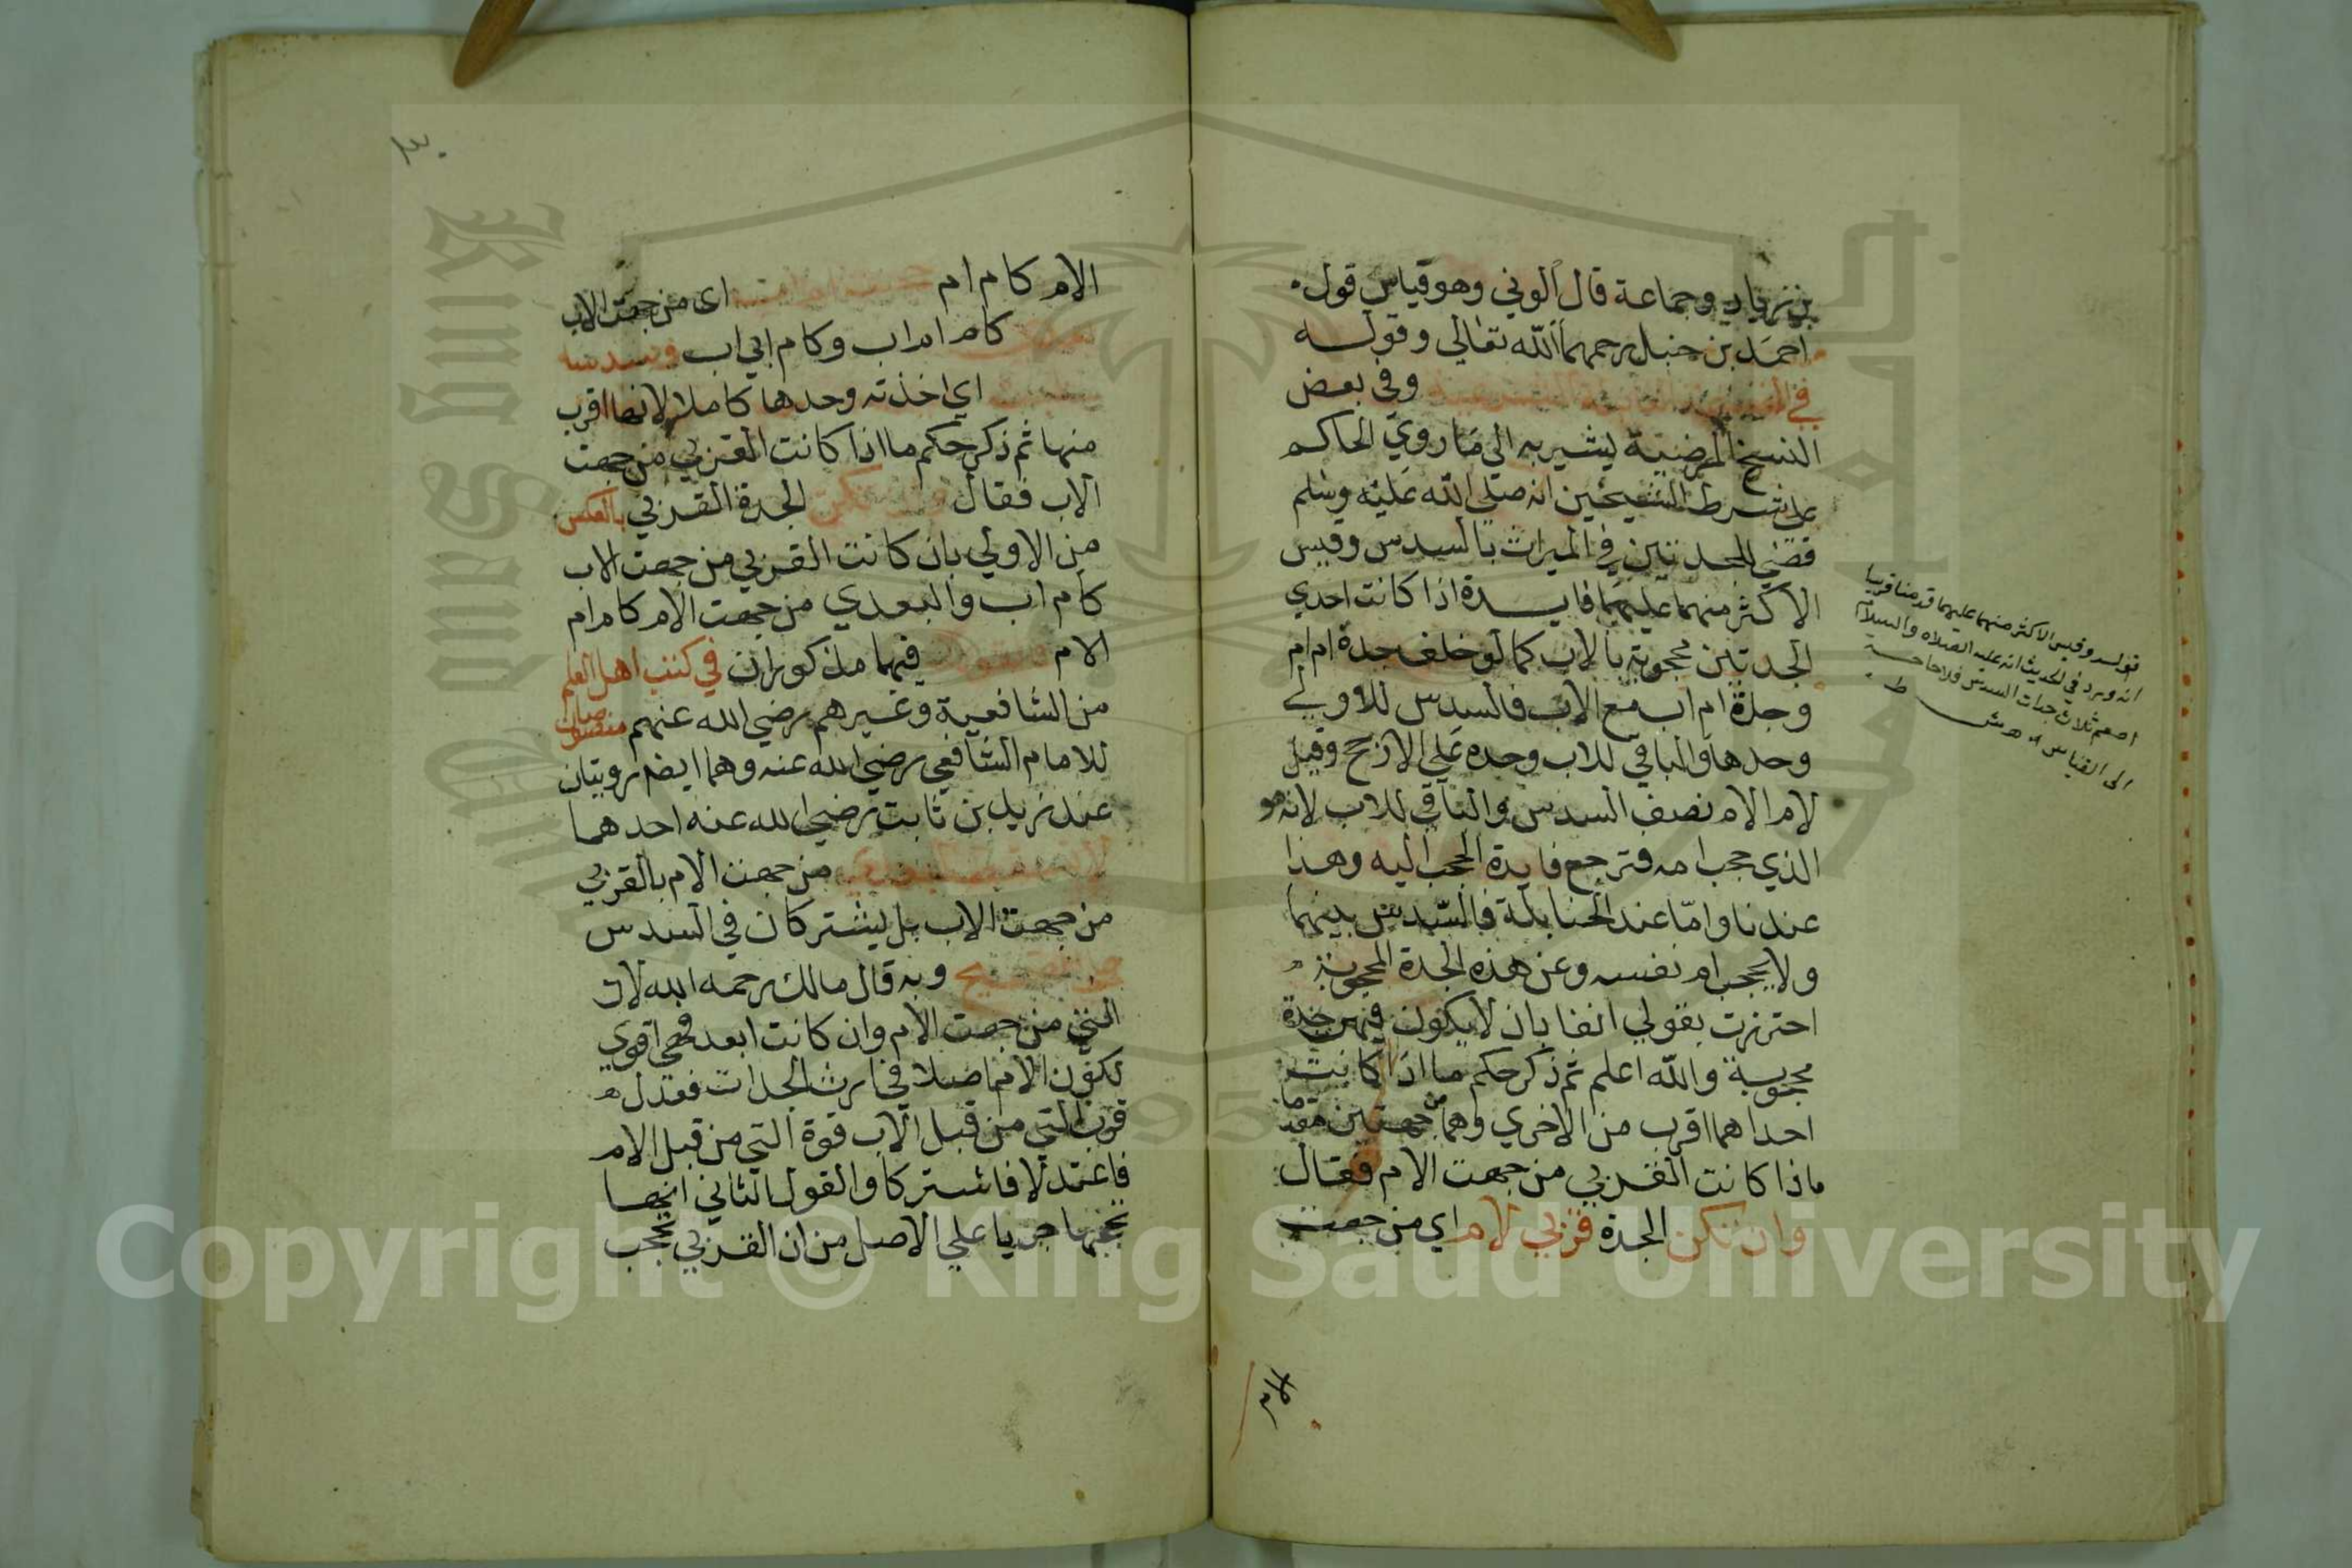 بن زياد وجماعة قال الوني وهو قياس قول
احمد بن حنبل رحمهما الله تعالي وقوله
في وفي بعض
النسخ المرضية يشير به الي ما روي الحاكم
علي شرط الشيخين انه صلي الله عليه وسلم
قضي للجدتين في الميراث بالسدس وقيس
الاكثر منهما عليهما فايدة اذا كانت احدي
الجدتين محجوبة بالاب كما لو خلف جدة ام ام
وجدة ام اب مع الاب فالسدس للاولي
وحدها والباقي للاب وحده علي الارجح وقيل
لام الام نصف السدس والباقي للاب لانه هو
الذي حجب امه فترجع فايدة الحجب اليه وهذا
عندنا واما عند الحنابلة فالسدس بينهما
ولا يحجب ام نفسه وعن هذه الجدة المحجوبة
احترزت بقولي انفا بان لا يكون فيهن جدة
محجوبة والله اعلم ثم ذكر حكم ما اذا كانت
احداهما اقرب من الاخري وهما من جهتين مقدما
ماذا كانت القربي من جهت الام فقال
وان تكن الجدة قربي لام اي من جهت
الام
قوله وقيس الاكثر منهما عليهما قدمنا قريبا
انه ورد في الحديث انه عليه الصلاه والسلام
اطعم ثلاث جدات السدس فلا حاجة
الى القياس اه
٣٠
الام كام ام اي من جهت الاب
كام ام اب وكام ابي اب وسدسه
اي اخذته وحدها كاملا لانها اقرب
منها ثم ذكر حكم ما اذا كانت القربي من جهت
الاب فقال وان تكن الجدة القربي بالعكس
من الاولي بان كانت القربي من جهت الاب
كام اب والبعدي من جهت الام كام ام
الام فالقولان فيهما مذكوران في كتب اهل العلم
من الشافعية وغيرهم رضي الله عنهم منصوصان
للامام الشافعي رضي الله عنه وهما ايضا رويتان
عند زيد بن ثابت رضي الله عنه احدهما
لا تسقط البعدي من جهت الام بالقربي
من جهت الاب بل يشتركان في السدس
علي الصحيح وبه قال مالك رحمه الله لان
التي من جهت الام وان كانت ابعد فهي اقوي
لكون الام اصلا في ارث الجدات فعدل
قرب التي من قبل الاب قوة التي من قبل الام
فاعتدلا فاشتركا والقول الثاني انها
تحجبها جريا علي الاصل من ان القربي تحجب
Copyright © King Saud University